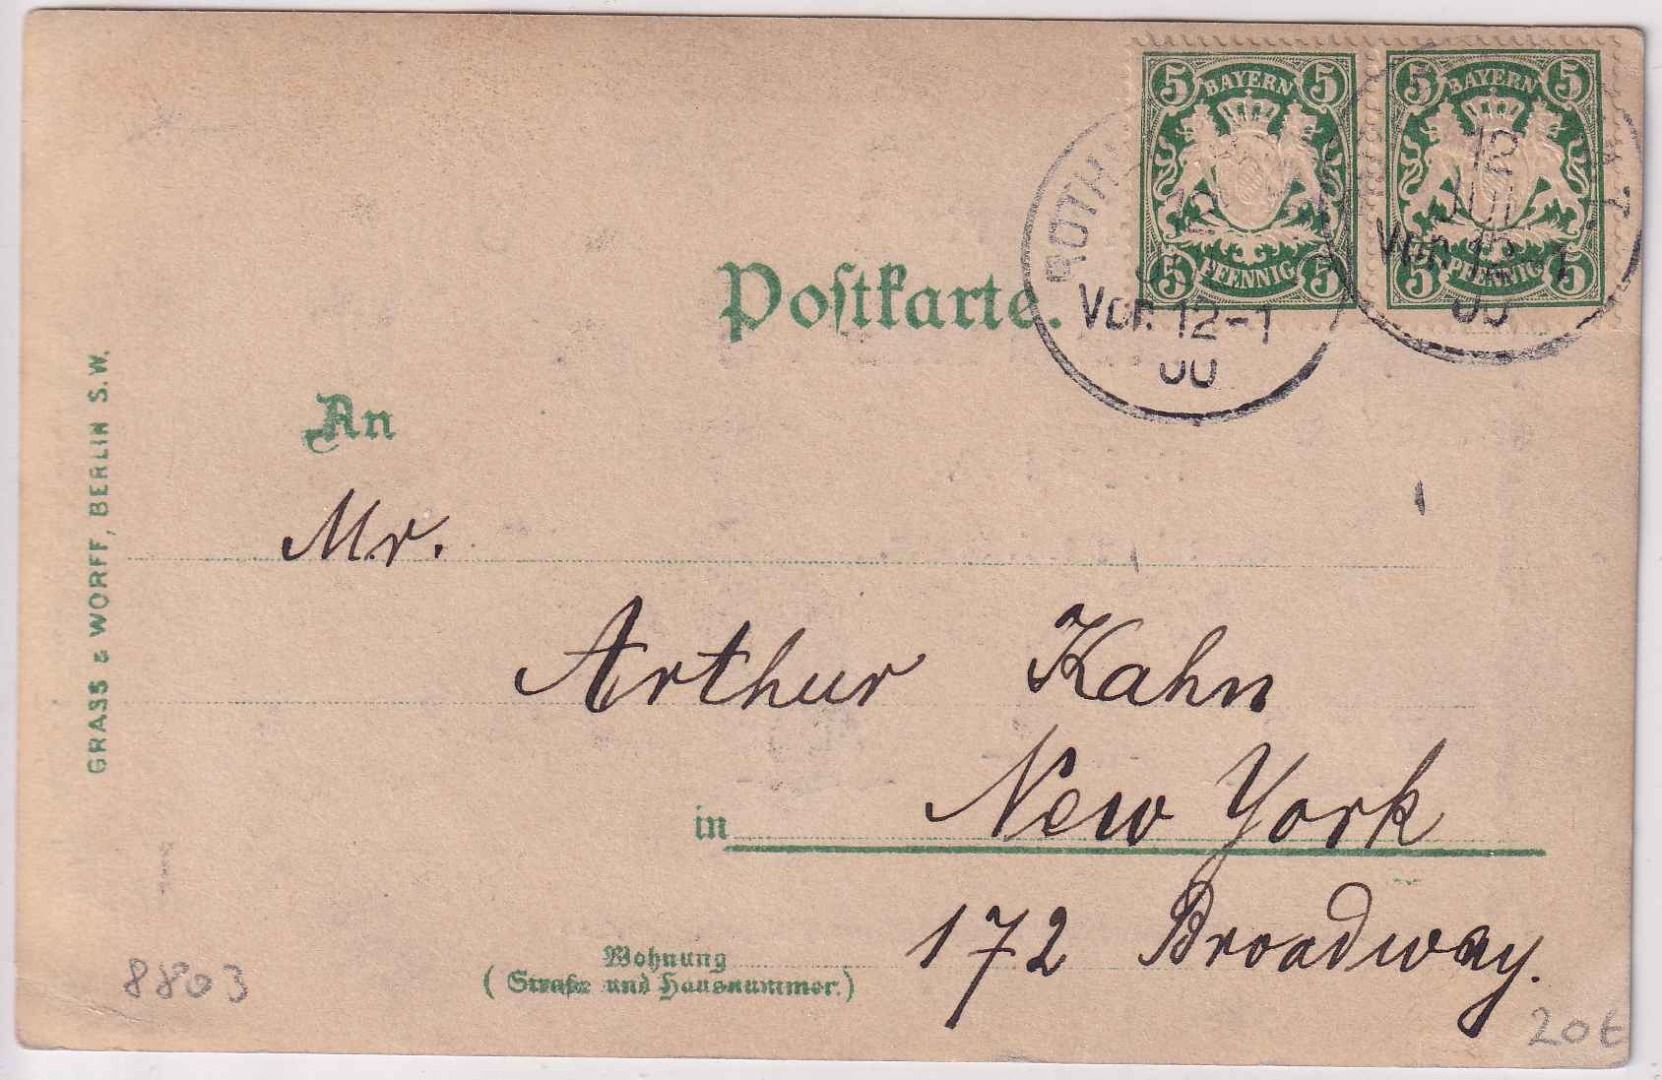 5 BAYERN 5
5 PFENNIG 5
5 BAYERN 5
5 PFENNIG 5
12
Vor. 12-1
00
12
JUL
Vor. 12-1
00
Poſtkarte.
An
Mr.
Arthur Kahn
in New York
172 Broadway.
Wohnung
(Straße und Hausnummer.)
GRASS & WORFF, BERLIN S.W.
8803